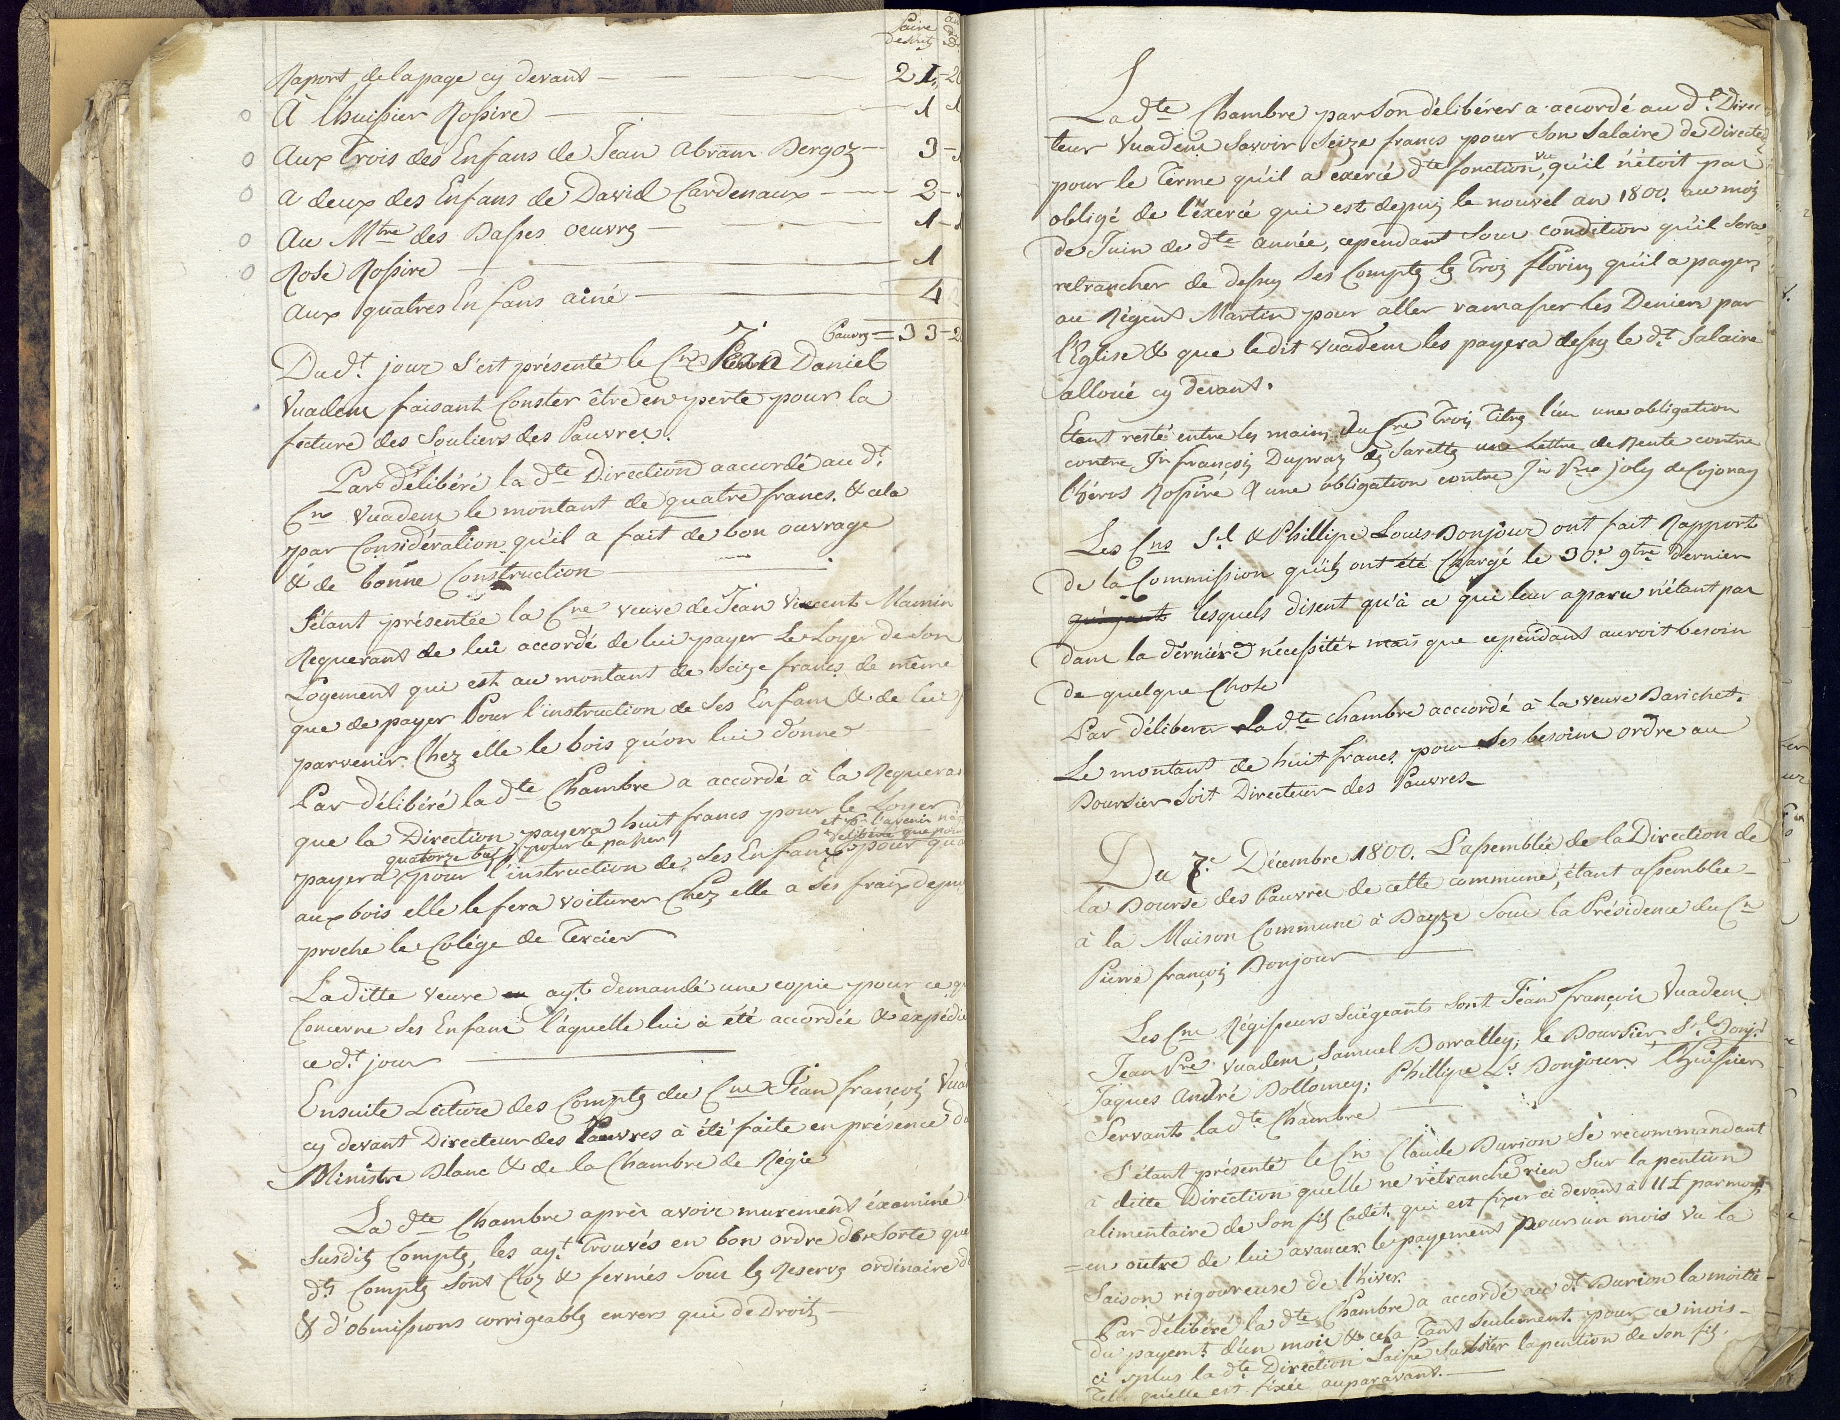 Paire de Soulis
Raport de la page cy devant — 21 - 2
À l'huissier Rossire — 1
Aux Trois des Enfans de Jean Abram Bergoz — 3
a deux des Enfans de David Cardenaux — 2
Au Mtre des Basses oeuvres — 1
Rose Rossire — 1
aux quatres Enfans ainé — 4
Pauvres = 33 - 2
Du dt jour s'est présenté le Cn Jean Daniel
Vuadens faisant Conster être en perte pour la
facture des Souliers des Pauvres.
Par délibéré la dte Direction a accordé au dt
Cn Vuadens le montant de quatre francs, & cela
par Considération qu'il a fait de bon ouvrage
& de bonne Construction
S'étant présentée la Cne veuve de Jean Vincent Mamin
Requerant de lui accordé de lui payer Le Loyer de Son
Logement qui est au montant de Seize francs de même
que de payer Pour l'instruction de Ses Enfans & de lui f
parvenir Chez elle le bois qu'on lui donne
Par délibéré la dte Chambre a accordé à la Requeran
que la Direction payera huit francs pour le Loyer
et pr l'avenir n'a
quatorze bz pour le passer délibéré que pour
payera pour l'instruction de Ses Enfans pour qua
aux bois elle le fera voiturer Chez elle a Ses fraix depui
proche le Colége de Tercier
La ditte veuve ayt demandé une copie pour ce q
Concerne Ses Enfans l'aquelle lui à été accordée & expédié
ce dt jour
Ensuite Lecture des Comptes du Cn Jean françois Vuad
cy devant Directeur des Pauvres à été faite en présence d
Ministre Blanc & de la Chambre de Régie
La dte Chambre après avoir murement éxaminé
Susdits Comptes, les ayt Trouvés en bon ordre de Sorte que
dts Comptes Sont Cloz & fermés Sous les Reserves ordinaire d
& d'obmissions corrigeables envers qui de Droit
La dte Chambre par Son délibérer a accordé au dt Direc
teur Vuadens Savoir Seize francs pour Son Salaire de Directe
pour le Terme qu'il a exercé dte fonction, vu qu'il n'étoit pas
obligé de l'exercé qui est depuis le nouvel an 1800. au mois
de Juin de dte année, cependant Sous condition qu'il Sera
retrancher de dessus Ses Comptes les Trois florins qu'il a payer
au Régent Martin pour aller ramasser les Deniers par
l'Eglise & que le dit Vuadens les payera dessus le dt Salaire
alloué cy devant.
Etant resté entre les mains du Pre Trois Titres l'un une obligation
contre Jn françois Dupraz des Sarettes une Lettre de Rente contre
l'héros Rossiré & une obligation contre Jn Pre joly de Cojonay
Les Cns Sl & Phillipe Louis Bonjour ont fait Rapport
de la Commission qu'ils ont été Chargé le 30e 9bre dernier
lesquels disent qu'à ce qui leur a paru n'étant pas
dans la dérniere nécessité mais que cependant auroit besoin
de quelque Chose
Par déliberer La dte Chambre acccordé à la veuve Barichet
Le montant de huit francs pour Ses besoins ordre au
Boursier Soit Directeur des Pauvres
Du 7e Décembre 1800. L'assemblée de la Direction de
la Bourse des Pauvres de cette commune, étant assemblée
à la Maison Commune à Bayze Sous la Présidence du Cn
Pierre françois Bonjour
Les Cns Régisseurs Siégeants Sont Jean françois Vuadens
Jean Pre Vuadens, Samuel Borralley; le Boursier, Sl Bonjr
Jaques André Dollomey; Phillipe Ls Bonjour, l'huissier
Servant la dte Chambre
S'étant présenté le Cn Claude Burion Se recommandant
à ditte Direction qu'elle ne retranche rien Sur la pention
alimentaire de Son fils Cadet, qui est fixer ci devant à 11 £ par mois
en outre de lui avancer le payement Pour un mois vu la
Saison rigoureuse de l'hiver.
Par délibéré la dte Chambre a accordé au dt Burion la moitié
du payemt d'un mois & cela Tant Seulement pour ce mois
ci plus la dte Direction Laisse Subsister la pention de Son fils.
Telle qu'elle est fixée auparavant.